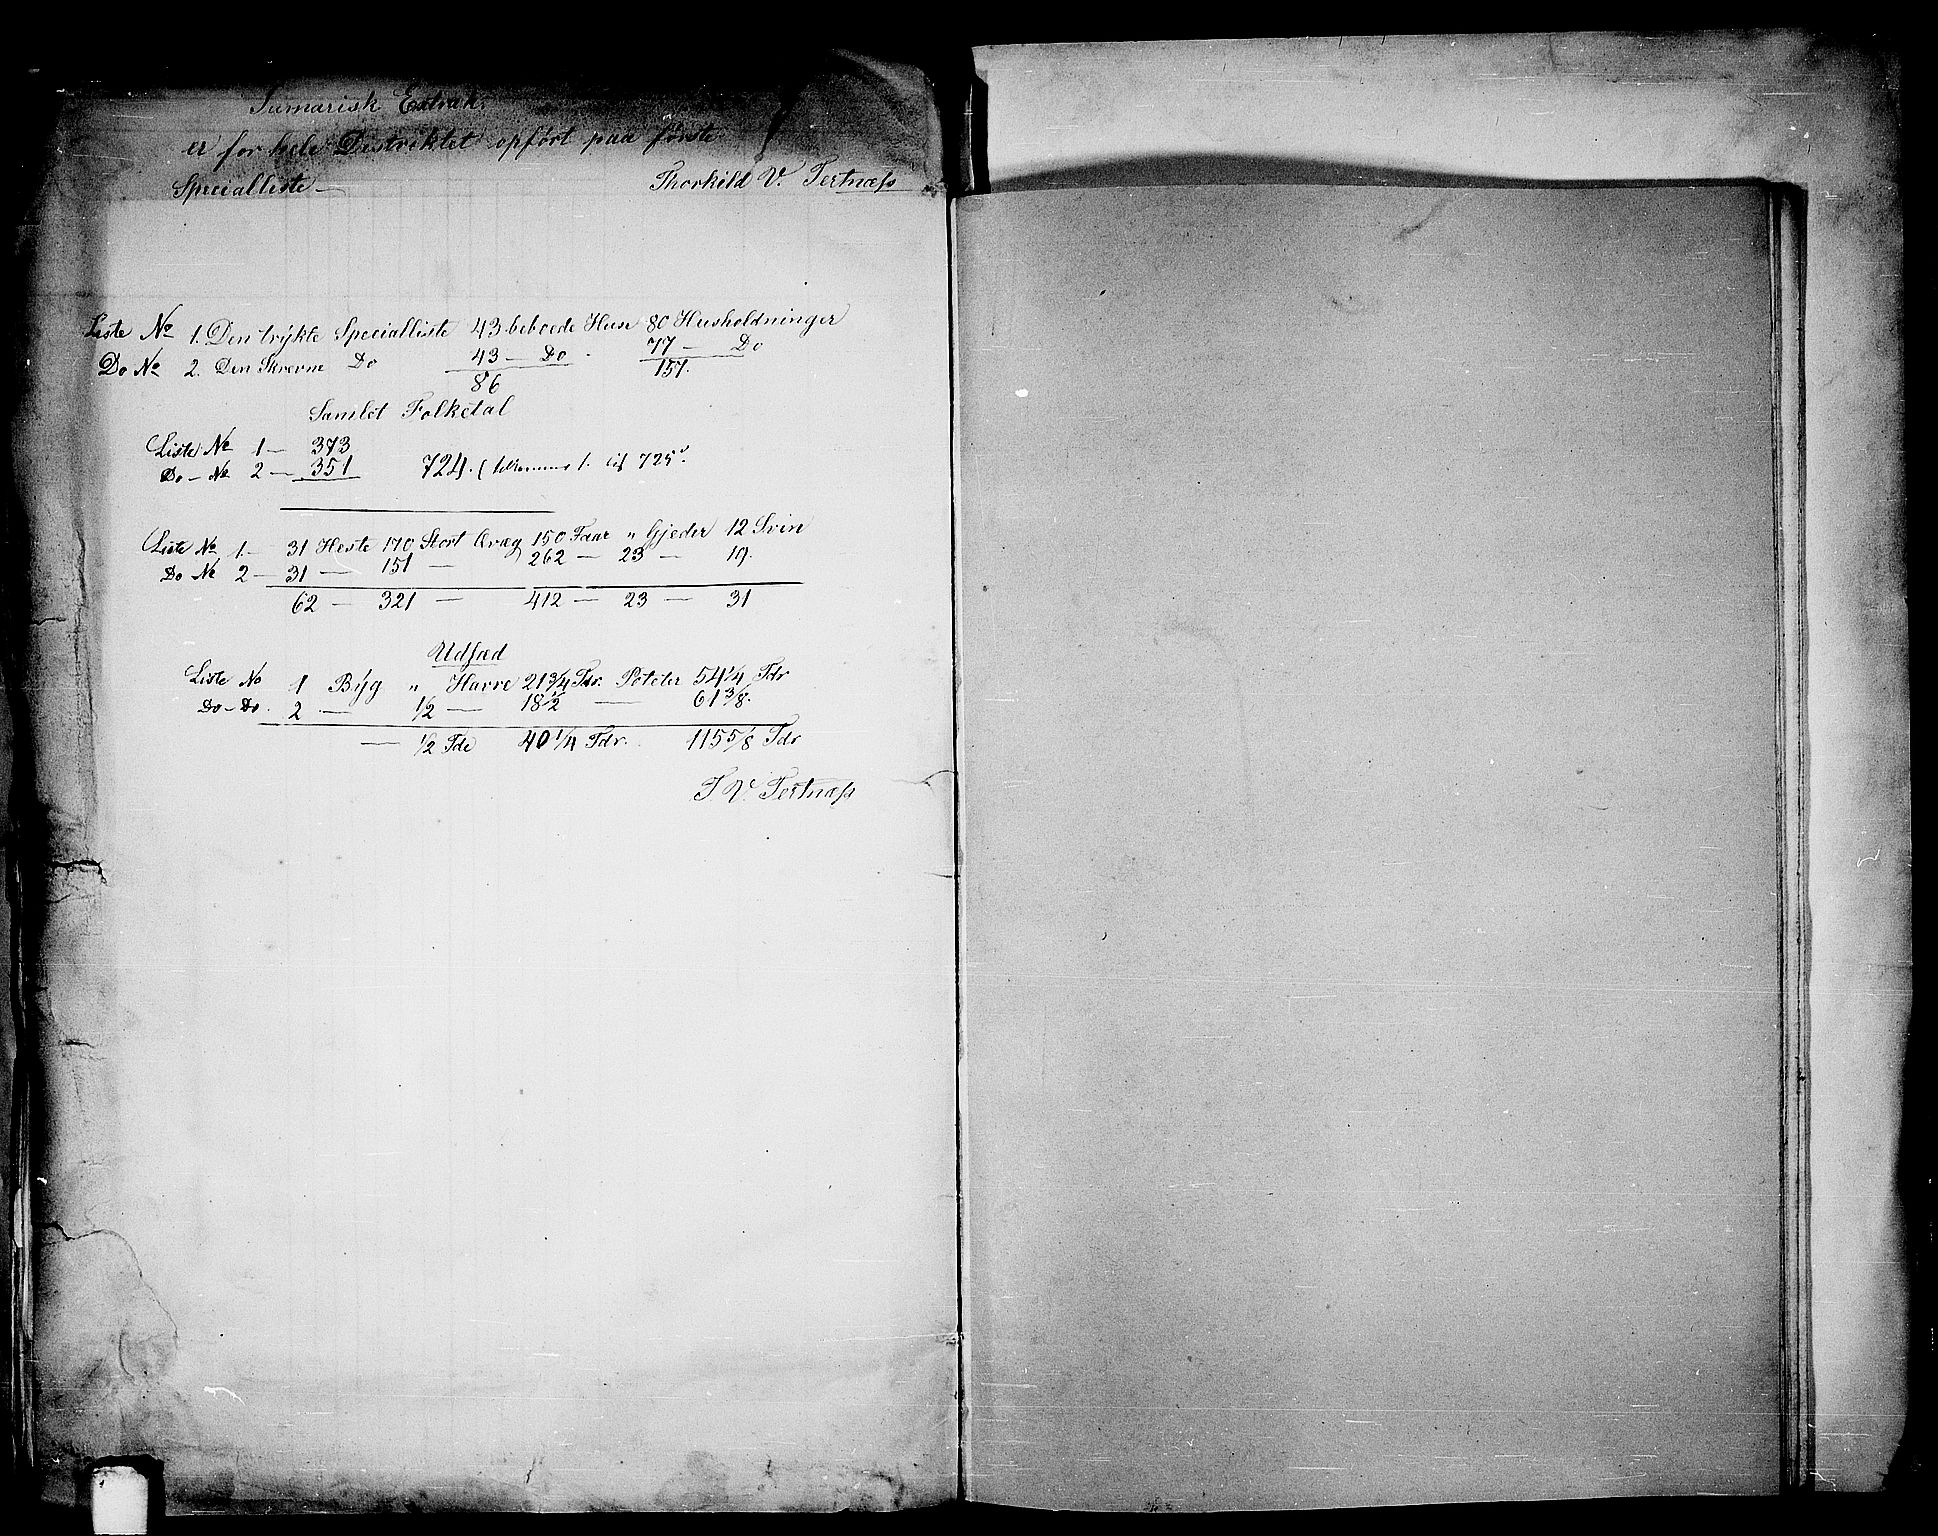 Sumarisk Extrakt
er for hele Distriktet opført paa første
Specialliste — Thorkild V. Tertnæss
Liste No 1. Den trykte Specialliste 43 beboede Huse 80 Husholdninger
Do No 2. Den Skrevne Do 43 — Do 77 — Do
86 157.
Samlet Folketal
Liste No 1 — 373
Do — No 2 — 351 724. ( 1. til 725
Liste No 1 — 31 Heste 170 Stort Qvæg 150 Faar „ Gjeder 12 Svin
Do No 2 — 31 — 151 — 262 — 23 — 19.
62 — 321 — 412 — 23 — 31
Udsæd
Liste No 1 Byg „ Havre 21 3/4 Tdr. Poteter 54 1/4 Tdr
Do — Do. 2 — 1/2 — 18 1/2 — 61 3/8.
— 1/2 Tde 40 1/4 Tdr. 115 5/8 Tdr
T. V. Tertnæss